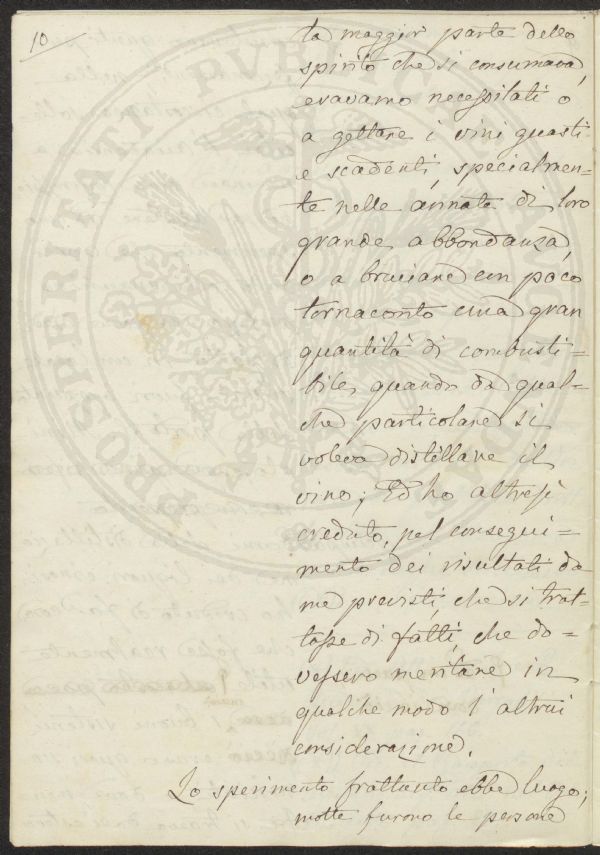 10
la maggior parte dello
spirito che si consumava,
eravamo necessitati o
a gettare i vini guasti
e scadenti, specialmen-
te nelle annate di loro
grande abbondanza,
o a bruciare con poco
tornaconto una gran
quantità di combusti-
bile, quando da qual-
che particolare si
voleva distillare il
vino; Ed ho altresì
creduto, pel consegui-
mento dei risultati da
me previsti, che si trat-
tasse di fatti, che do-
vessero meritare in
qualche modo l'altrui
considerazione.
Lo sperimento frattanto ebbe luogo;
molte furono le persone
PROSPERITATI PVBLICAE